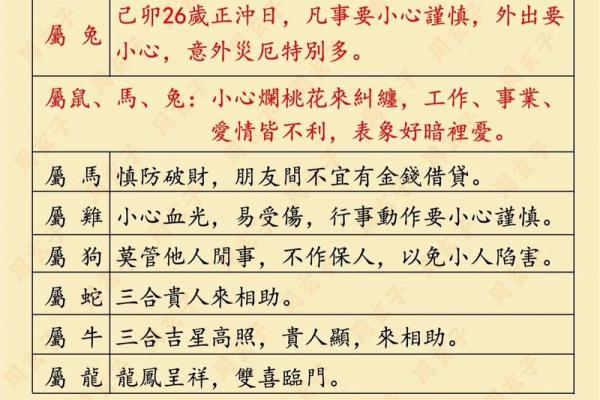 屬 兔 己卯26歲正沖日，凡事要小心謹慎，外出要
小心，意外災厄特別多。
屬鼠、馬、兔：小心爛桃花來糾纏，工作、事業、
愛情皆不利，表象好暗裡憂。
屬 馬 慎防破財，朋友間不宜有金錢借貸。
屬 雞 小心血光，易受傷，行事動作要小心謹慎。
屬 狗 莫管他人閒事，不作保人，以免小人陷害。
屬 蛇 三合貴人來相助。
屬 牛 三合吉星高照，貴人顯，來相助。
屬 龍 龍鳳呈祥，雙喜臨門。
周玄子